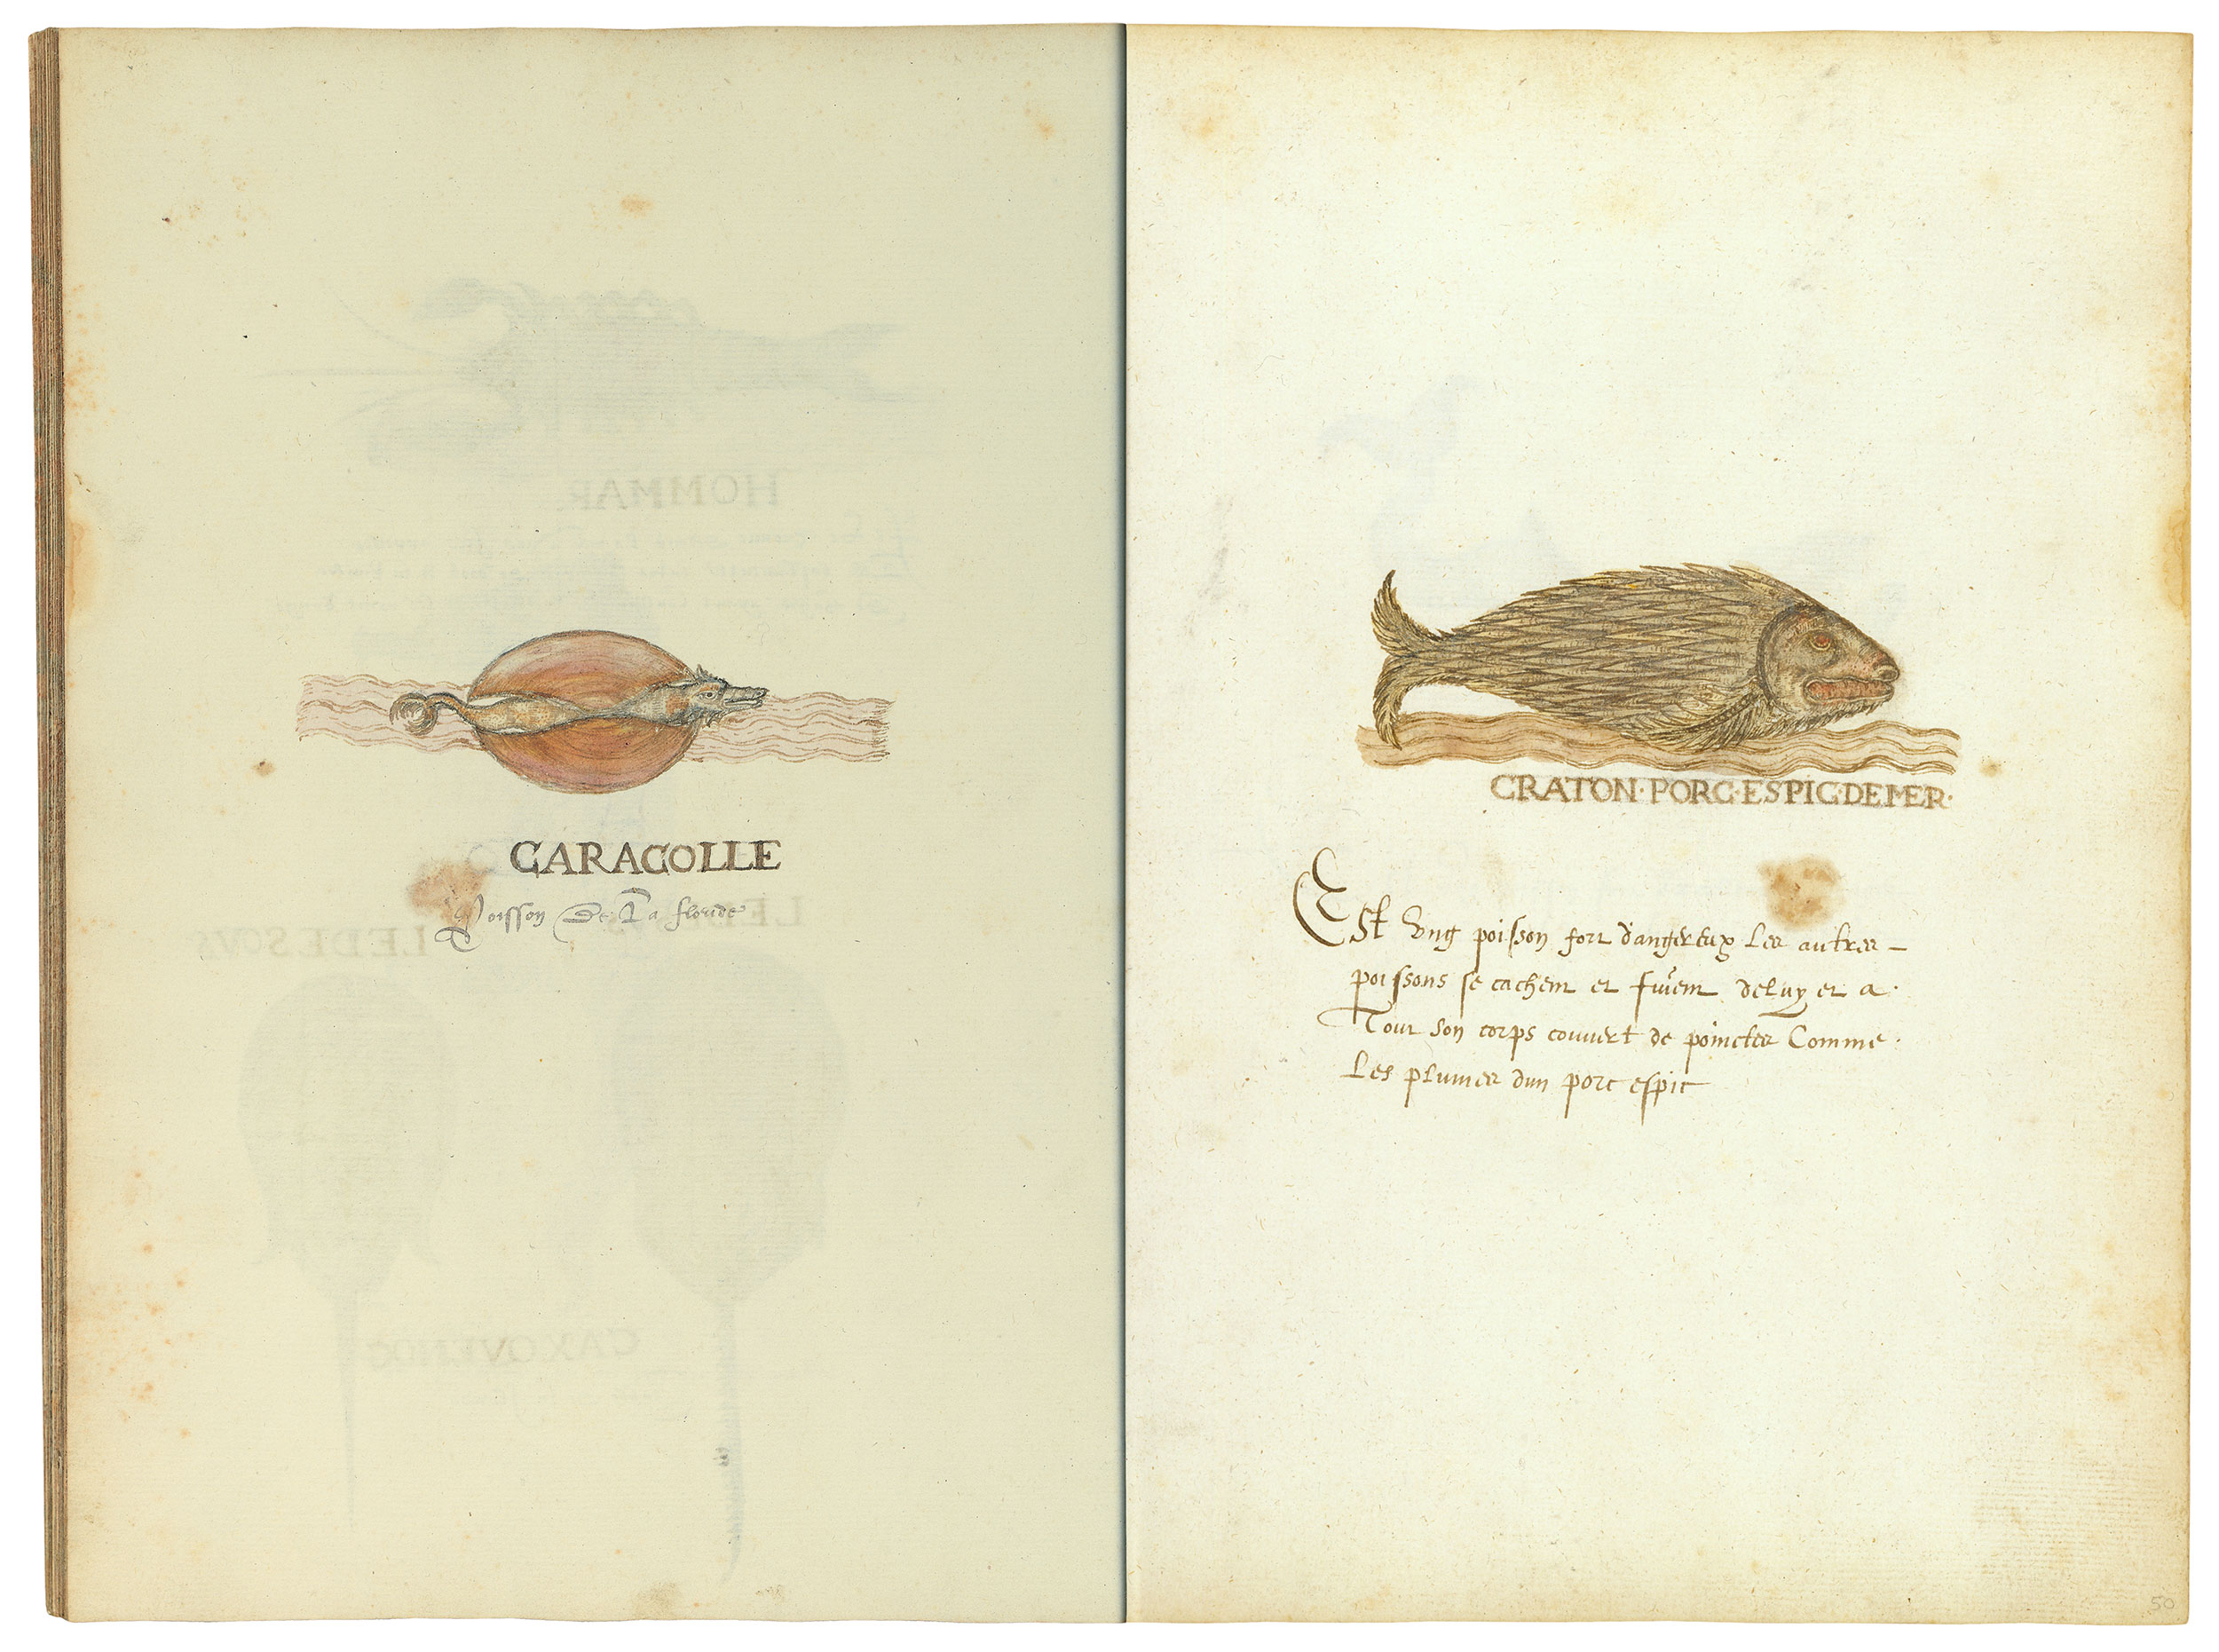 CARACOLLE
Poisson De La floride
CRATON·PORC·ESPIC·DE MER·
Est vng poisson fort dangereux Les autres
poissons se cachent et fuient deluy et a
Tout son corps couuert de poinctes Comme
Les plumes dun porc espic
50
HOMMAR
LE DESOVS